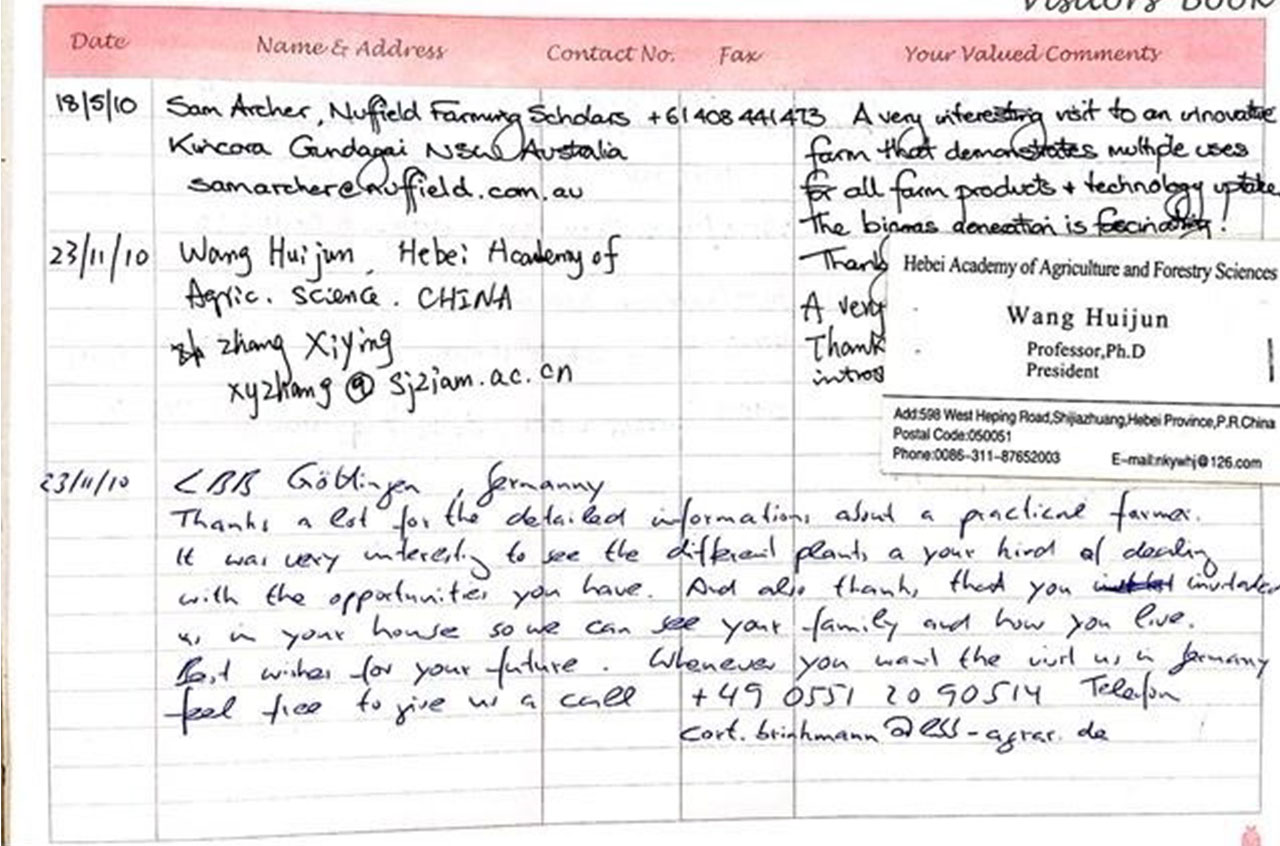 Visitors Book
Date Name & Address Contact No. Fax Your Valued Comments
18/5/10 Sam Archer, Nuffield Farming Scholars +61408 441473 A very interesting visit to an innovative
Gundagai NSW Australia farm that demonstrates multiple uses
samarcher@nuffield.com.au for all farm products + technology uptake
The is fascinating!
23/11/10 Wang Huijun, Hebei Academy of Thank
Agric. Science. CHINA A very
zhang Xiying Thank
xyzhang @ sjziam.ac.cn
Hebei Academy of Agriculture and Forestry Sciences
Wang Huijun
Professor,Ph.D
President
Add:598 West Heping Road,Shijiazhuang,Hebei Province,P.R.China
Postal Code:050051
Phone:0086-311-87652003 E-mail:nkywhj@126.com
23/11/10 LBB Göttingen, Germanny
Thanks a lot for the detailed informations about a practical farmer.
It was very interesting to see the different plants a your kind of dealing
with the opportunities you have. And also thanks that you
us in your house so we can see your family and how you live.
Best wishes for your future. Whenever you want the visit us in Germany
feel free to give us a call +49 0551 20 90514 Telefon
cort.brinkmann@ -agrar.de